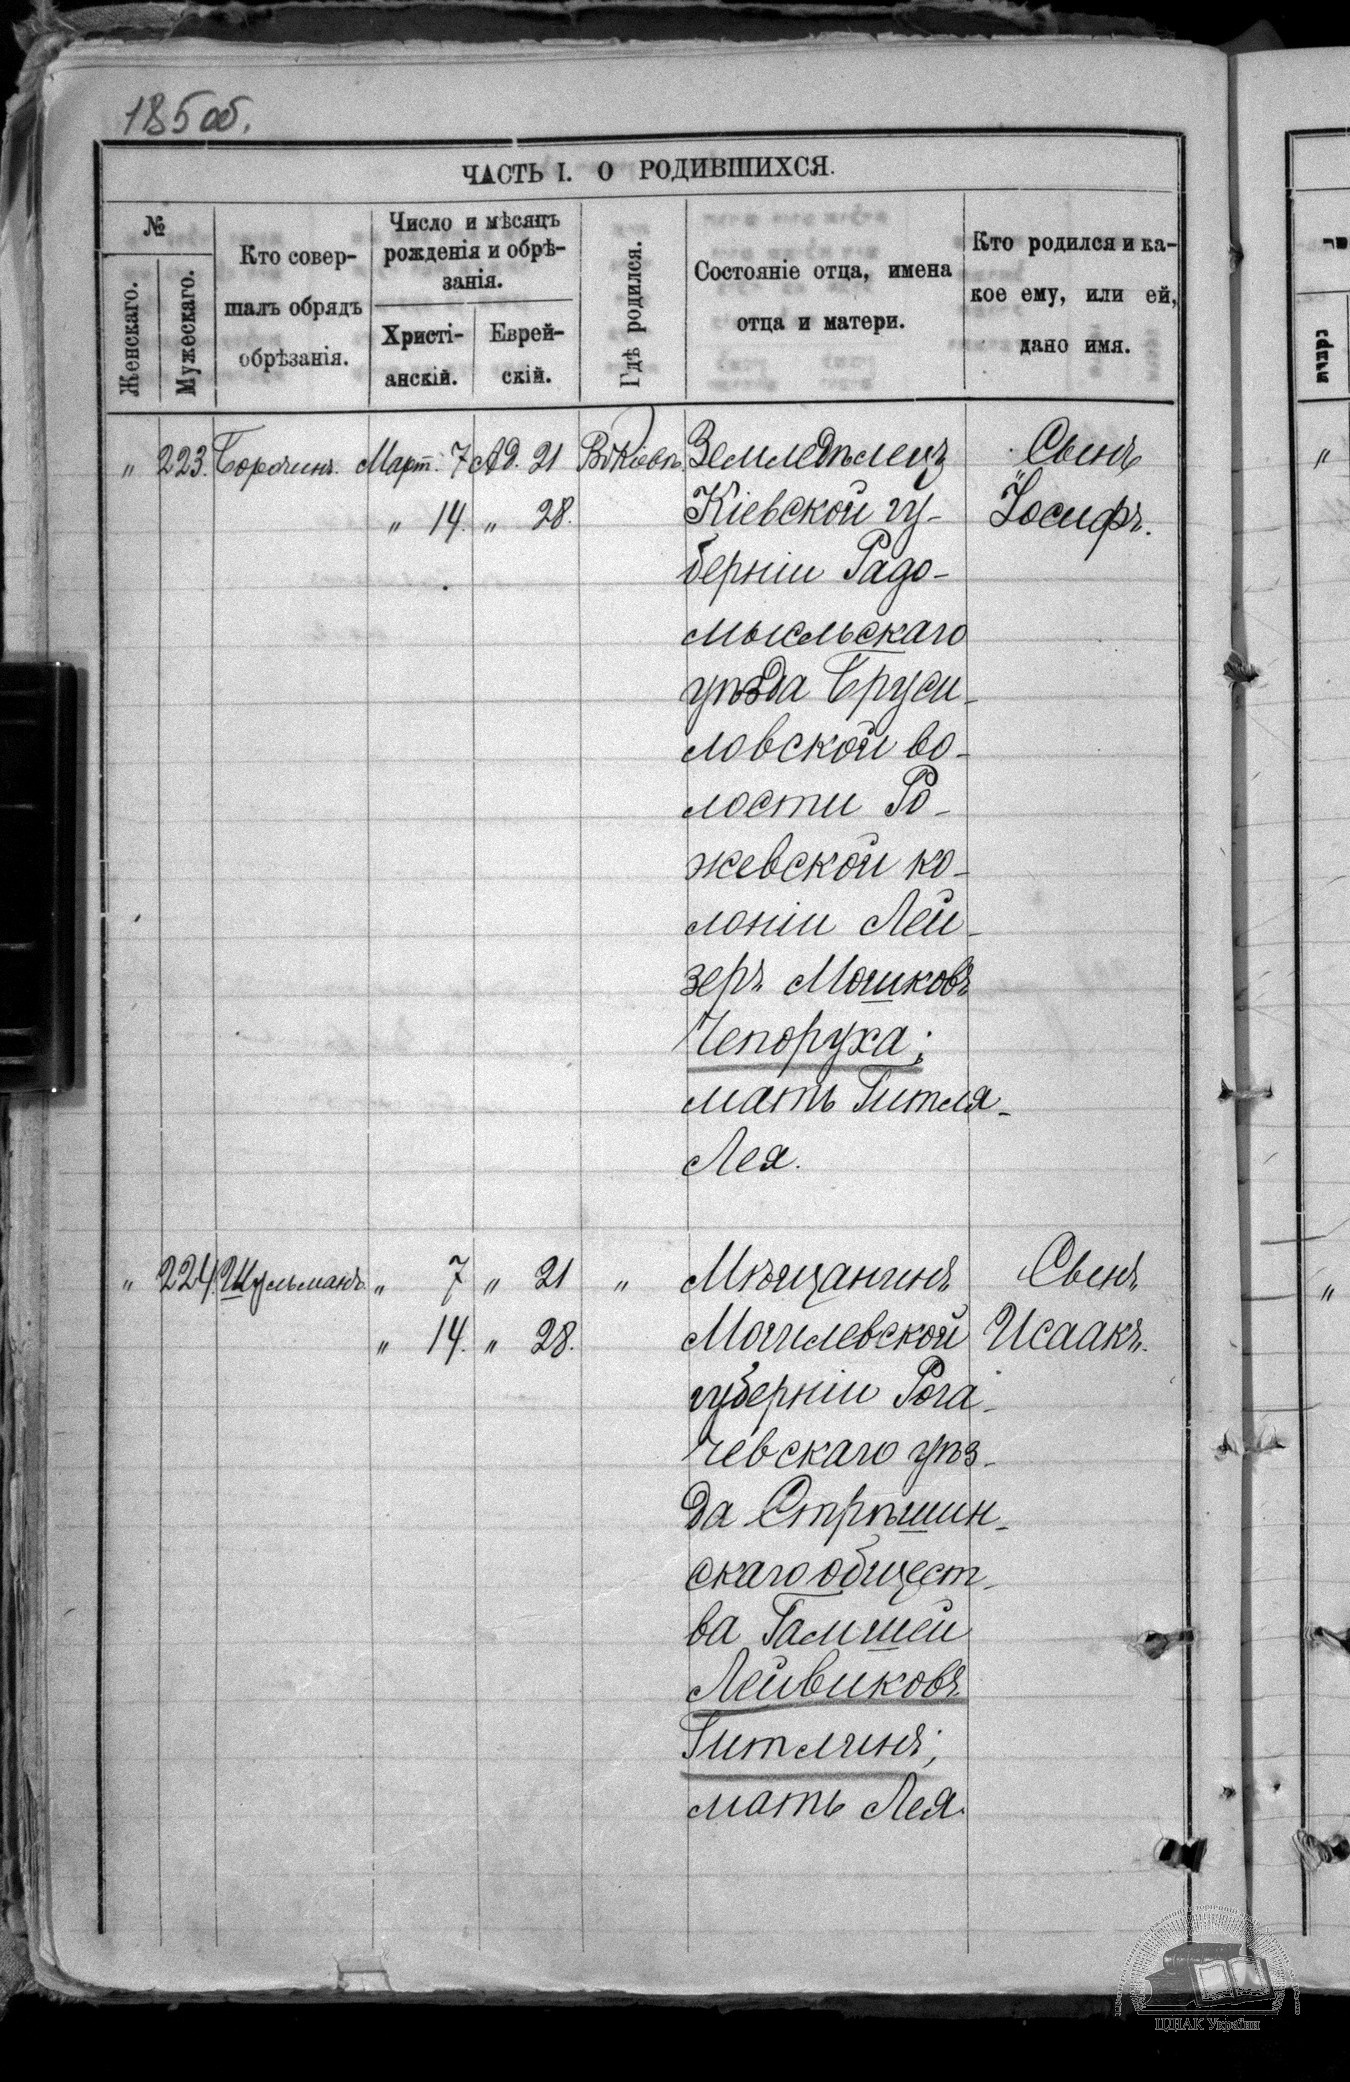 185 об.
ЧАСТЬ I. О РОДИВШИХСЯ.
№
Женскаго.
Мужескаго.
Кто совер-
шалъ обрядъ
обрѣзанія.
Число и мѣсяцъ
рожденія и обрѣ-
занія.
Христі-
анскій.
Еврей-
скій.
Гдѣ родился.
Состояніе отца, имена
отца и матери.
Кто родился и ка-
кое ему, или ей,
дано имя.
„ 223. Март. 7 Ад. 21 Въ Кіевѣ. Земледѣлецъ Сынъ
„ 14. „ 28. Кіевской гу- Іосифъ.
берніи Радо-
мысльскаго
уѣзда Бруси-
ловской во-
лости Ро-
жевской ко-
лоніи Лей-
зеръ Мошковъ
Чепоруха;
мать Гитля-
Лея.
„ 224. Шульманъ. „ 7 „ 21 „ Мѣщанинъ Сынъ
„ 14. „ 28. Могилевской Исаакъ.
губерніи Рога-
чевскаго уѣз-
да Стрѣшин-
скаго общест-
ва Гамшей
Лейвиковъ
Гитлинъ;
мать Лея.
ЦДІАК України